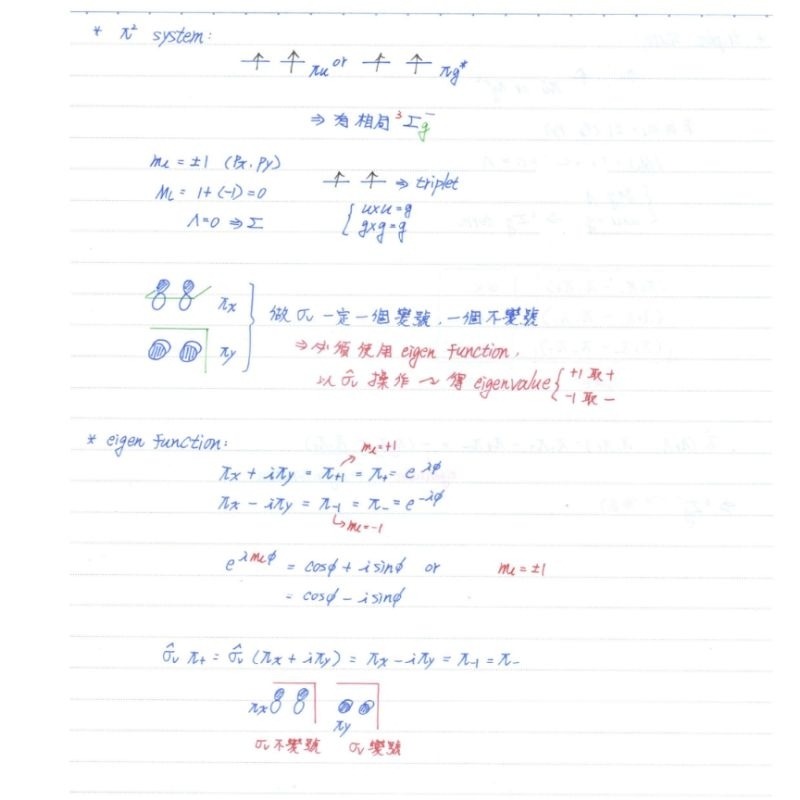 * π² system:
↑ ↑ πu or ↑ ↑ πg*
⇒ 有相同 ³Σg⁻
mℓ = ±1 (Px, Py)
ML = 1+(-1)=0
Λ=0 ⇒ Σ
↑ ↑ ⇒ triplet
{ u×u=g
g×g=g
πx
πy
做 σv 一定一個變號,一個不變號
⇒ 必須使用 eigen function,
以 σ̂v 操作 ~ 得 eigenvalue { +1 取 +
-1 取 −
* eigen function:
mℓ=+1
πx + iπy = π+1 = π+ = e^iφ
πx − iπy = π-1 = π- = e^-iφ
mℓ=-1
e^imℓφ = cosφ + i sinφ or mℓ = ±1
= cosφ − i sinφ
σ̂v π+ = σ̂v (πx + iπy) = πx − iπy = π-1 = π-
πx
πy
σv 不變號 σv 變號